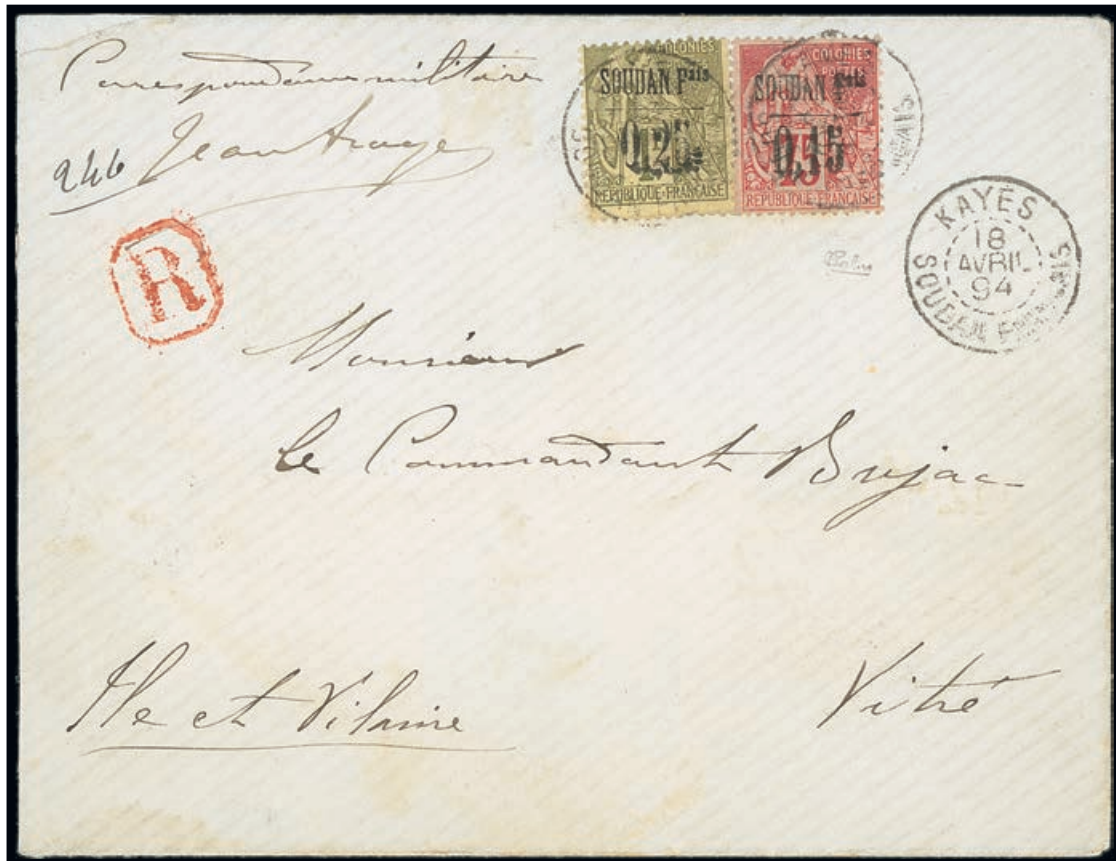 Correspondance militaire
Jean
246
COLONIES
SOUDAN Fais
0,25
REPUBLIQUE FRANÇAISE
COLONIES
POSTES
SOUDAN Fais
0,15
75
REPUBLIQUE FRANÇAISE
KAYES
18
AVRIL
94
SOUDAN FRANÇAIS
R
Monsieur
le Commandant Bujac
Ile et Vilaine
Vitré